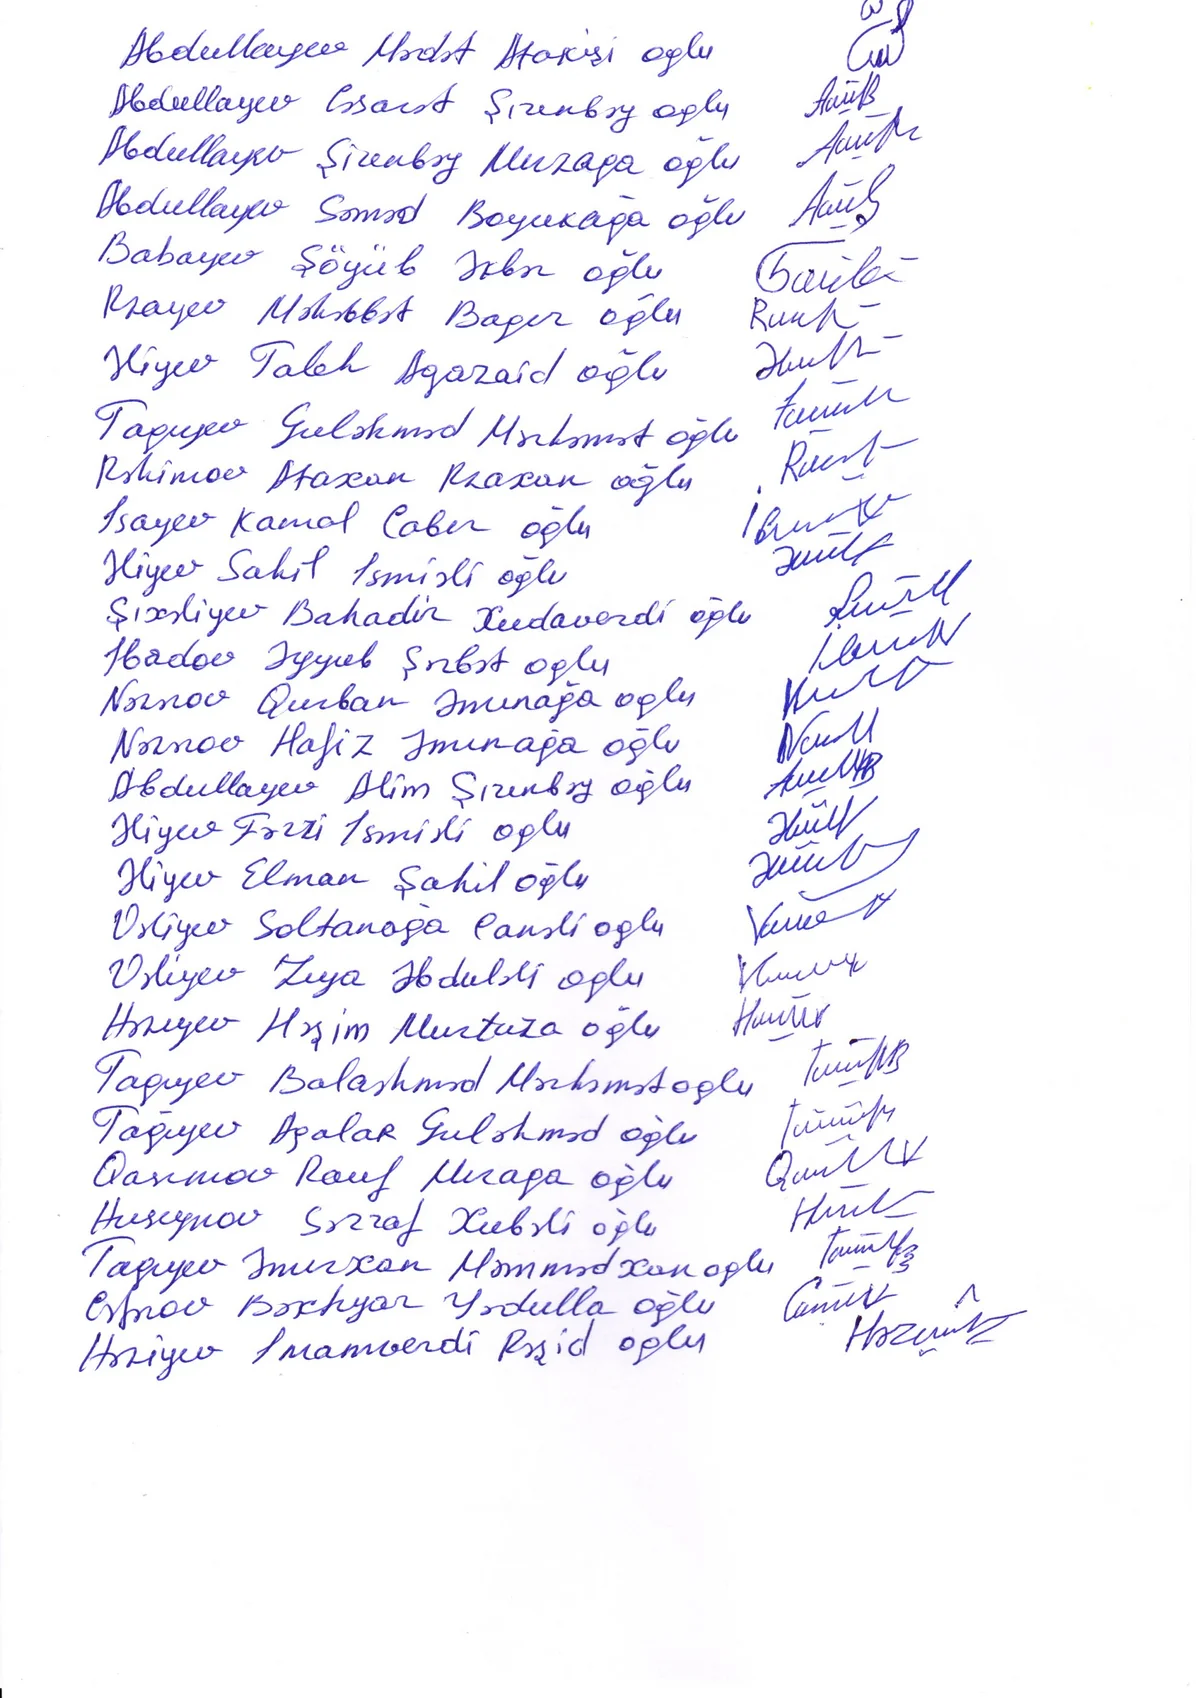 Abdullayev Mədət Atakişi oglu
Abdullayev Əsarət Şirenbəy oglu
Abdullayev Şirenbəy Mirzaga oğlu
Abdullayev Səməd Boyukağa oğlu
Babayev Şöyüb Əkbər oğlu
Rzayev Məhəbbət Bager oğlu
Əliyev Taleh Agazaid oğlu
Tagıyev Guləhməd Mərhəmət oğlu
Rəhimov Ataxan Rzaxan oğlu
Isayev Kamal Caber oğlu
Əliyev Sahil Ismisli oğlu
Şıxəliyev Bahadir Xudaverdi oğlu
Ibadov Əyyub Şərbət oglu
Nəzərov Qurban Əmınağa oglu
Nəzərov Hafiz Əmınağa oğlu
Abdullayev Alim Şirenbəy oğlu
Əliyev Fərzi Ismisli oglu
Əliyev Elman Şahil oğlu
Vəliyev Soltanağa Canəli oglu
Vəliyev Zıya Əbduləli oglu
Həzıyev Həşim Murtuza oğlu
Tagıyev Balaəhməd Mərhəmət oglu
Tağıyev Agalar Guləhməd oğlu
Qasımov Rauf Mırzaga oğlu
Huseynov Sərraf Xubəli oğlu
Tagıyev Əmırxan Məmmədxan oglu
Cəfərov Bəxtıyar Yədulla oğlu
Həziyev Imamverdi Rəşid oglu